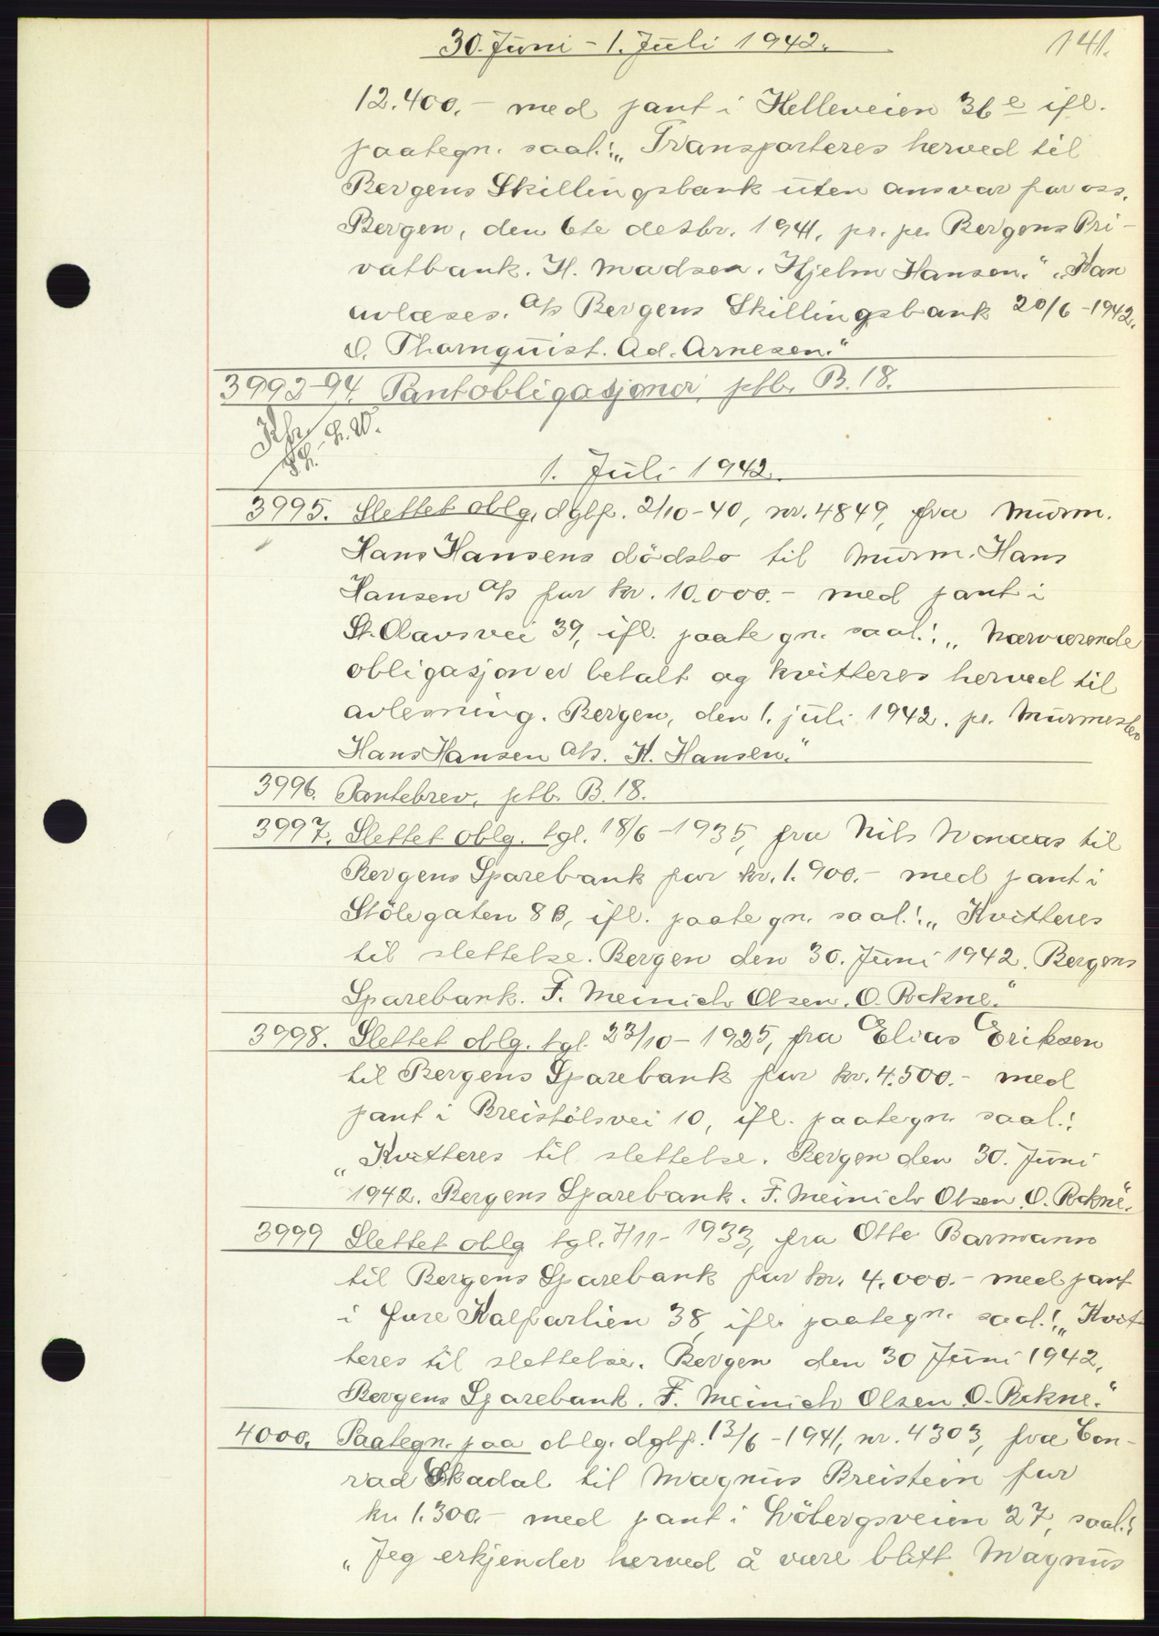 30. Juni - 1. Juli 1942.
141.
12.400.- med pant i Helleveien 36 e ifl.
paategn. saal.: „Transporteres herved til
Bergens Skillingsbank uten ansvar for oss.
Bergen, den 6te desbr. 1941. pr. pr. Bergens Pri-
vatbank. H. Madsen. Hjelm Hansen." „Kan
avlæses. A/s Bergens Skillingsbank 20/6-1942.
O. Thornquist. Ad. Arnesen."
3993-94. Pantobligasjoner, ptb. B. 18.
1. Juli 1942.
3995. Slettet oblg. dglf. 2/10-40, nr. 4849, fra Murm.
Hans Hansens dödsbo til Murm. Hans
Hansen A/s for kr. 10.000.- med pant i
St. Olavsvei 39, ifl. paategn. saal.: „Nærværende
obligasjon er betalt og kvitteres herved til
avlesning. Bergen, den 1. juli 1942. pr. Murmester
Hans Hansen A/s. H. Hansen."
3996. Pantebrev, ptb. B. 18.
3997. Slettet oblg. tgl. 18/6-1935, fra Nils til
Bergens Sparebank for kr. 1.900.- med pant i
Stölegaten 8B, ifl. paategn. saal.: „Kvitteres
til slettelse. Bergen den 30. Juni 1942. Bergens
Sparebank. F. Meinich Olsen. O. Rokne."
3998. Slettet oblg. tgl. 23/10-1925, fra Elias Eriksen
til Bergens Sparebank for kr. 4.500.- med
pant i Breistölsvei 10, ifl. paategn. saal.:
„Kvitteres til slettelse. Bergen den 30. Juni
1942. Bergens Sparebank. F. Meinich Olsen. O. Rokne."
3999 Slettet oblg tgl. 7/11-1933, fra Otto Barmann
til Bergens Sparebank for kr. 4.000.- med pant
i Øvre Kalfarlien 38, ifl. paategn. saal.: „Kvit
teres til slettelse. Bergen den 30 Juni 1942.
Bergens Sparebank. F. Meinich Olsen. O. Rokne."
4000. Paategn. paa oblg. dglf. 13/6-1941, nr. 4303, fra Con-
rad Skadal til Magnus Breistein for
kr. 1.300.- med pant i Løbergsveien 27, saal.:
„Jeg erkjender herved å være blitt Magnus